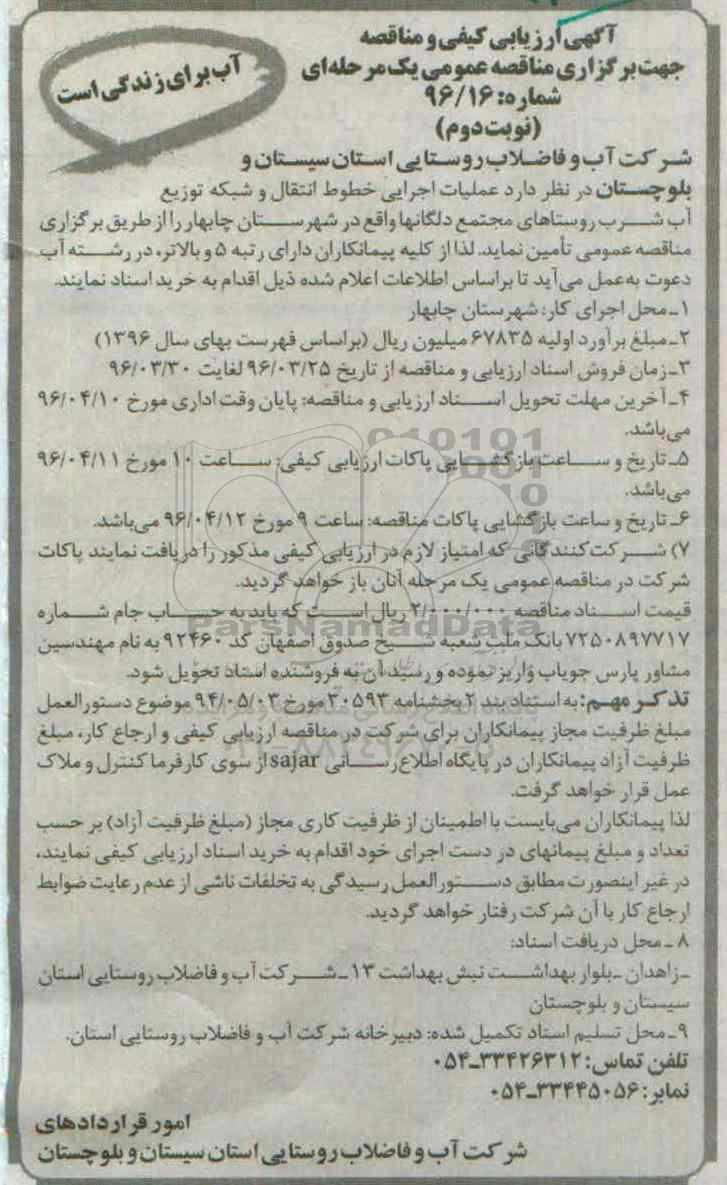 آگهی ارزیابی کیفی و مناقصه
جهت برگزاری مناقصه عمومی یک مرحله‌ای
شماره: ۹۶/۱۶
(نوبت دوم)
آب برای زندگی است
شرکت آب و فاضلاب روستایی استان سیستان و
بلوچستان در نظر دارد عملیات اجرایی خطوط انتقال و شبکه توزیع
آب شرب روستاهای مجتمع دلگانها واقع در شهرستان چابهار را از طریق برگزاری
مناقصه عمومی تأمین نماید. لذا از کلیه پیمانکاران دارای رتبه ۵ و بالاتر، در رشته آب
دعوت به‌عمل می‌آید تا براساس اطلاعات اعلام شده ذیل اقدام به خرید اسناد نمایند.
۱ـ محل اجرای کار: شهرستان چابهار
۲ـ مبلغ برآورد اولیه ۶۷۸۳۵ میلیون ریال (براساس فهرست بهای سال ۱۳۹۶)
۳ـ زمان فروش اسناد ارزیابی و مناقصه از تاریخ ۹۶/۰۳/۲۵ لغایت ۹۶/۰۳/۳۰
۴ـ آخرین مهلت تحویل اسناد ارزیابی و مناقصه: پایان وقت اداری مورخ ۹۶/۰۴/۱۰
می‌باشد.
۵ـ تاریخ و ساعت بازگشایی پاکات ارزیابی کیفی: ساعت ۱۰ مورخ ۹۶/۰۴/۱۱
می‌باشد.
۶ـ تاریخ و ساعت بازگشایی پاکات مناقصه: ساعت ۹ مورخ ۹۶/۰۴/۱۲ می‌باشد.
۷) شرکت‌کنندگانی که امتیاز لازم در ارزیابی کیفی مذکور را دریافت نمایند پاکات
شرکت در مناقصه عمومی یک مرحله آنان باز خواهد گردید.
قیمت اسناد مناقصه ۲/۰۰۰/۰۰۰ ریال است که باید به حساب جام شماره
۷۲۵۰۸۹۷۷۱۷ بانک ملت شعبه شیخ صدوق اصفهان کد ۹۲۴۶۰ به نام مهندسین
مشاور پارس جویاب واریز نموده و رسید آن به فروشنده اسناد تحویل شود.
ParsNamadData
تذکر مهم: به استناد بند ۲ بخشنامه ۳۰۵۹۳ مورخ ۹۴/۰۵/۰۳ موضوع دستورالعمل
مبلغ ظرفیت مجاز پیمانکاران برای شرکت در مناقصه ارزیابی کیفی و ارجاع کار، مبلغ
ظرفیت آزاد پیمانکاران در پایگاه اطلاع‌رسانی sajar از سوی کارفرما کنترل و ملاک
عمل قرار خواهد گرفت.
لذا پیمانکاران می‌بایست با اطمینان از ظرفیت کاری مجاز (مبلغ ظرفیت آزاد) بر حسب
تعداد و مبلغ پیمانهای در دست اجرای خود اقدام به خرید اسناد ارزیابی کیفی نمایند،
در غیر اینصورت مطابق دستورالعمل رسیدگی به تخلفات ناشی از عدم رعایت ضوابط
ارجاع کار با آن شرکت رفتار خواهد گردید.
۸ ـ محل دریافت اسناد:
ـ زاهدان ـ بلوار بهداشت نبش بهداشت ۱۳ ـ شرکت آب و فاضلاب روستایی استان
سیستان و بلوچستان
۹ـ محل تسلیم اسناد تکمیل شده: دبیرخانه شرکت آب و فاضلاب روستایی استان.
تلفن تماس: ۳۳۴۲۶۳۱۲ـ۰۵۴
نمابر: ۳۳۴۴۵۰۵۶ـ۰۵۴
امور قراردادهای
شرکت آب و فاضلاب روستایی استان سیستان و بلوچستان